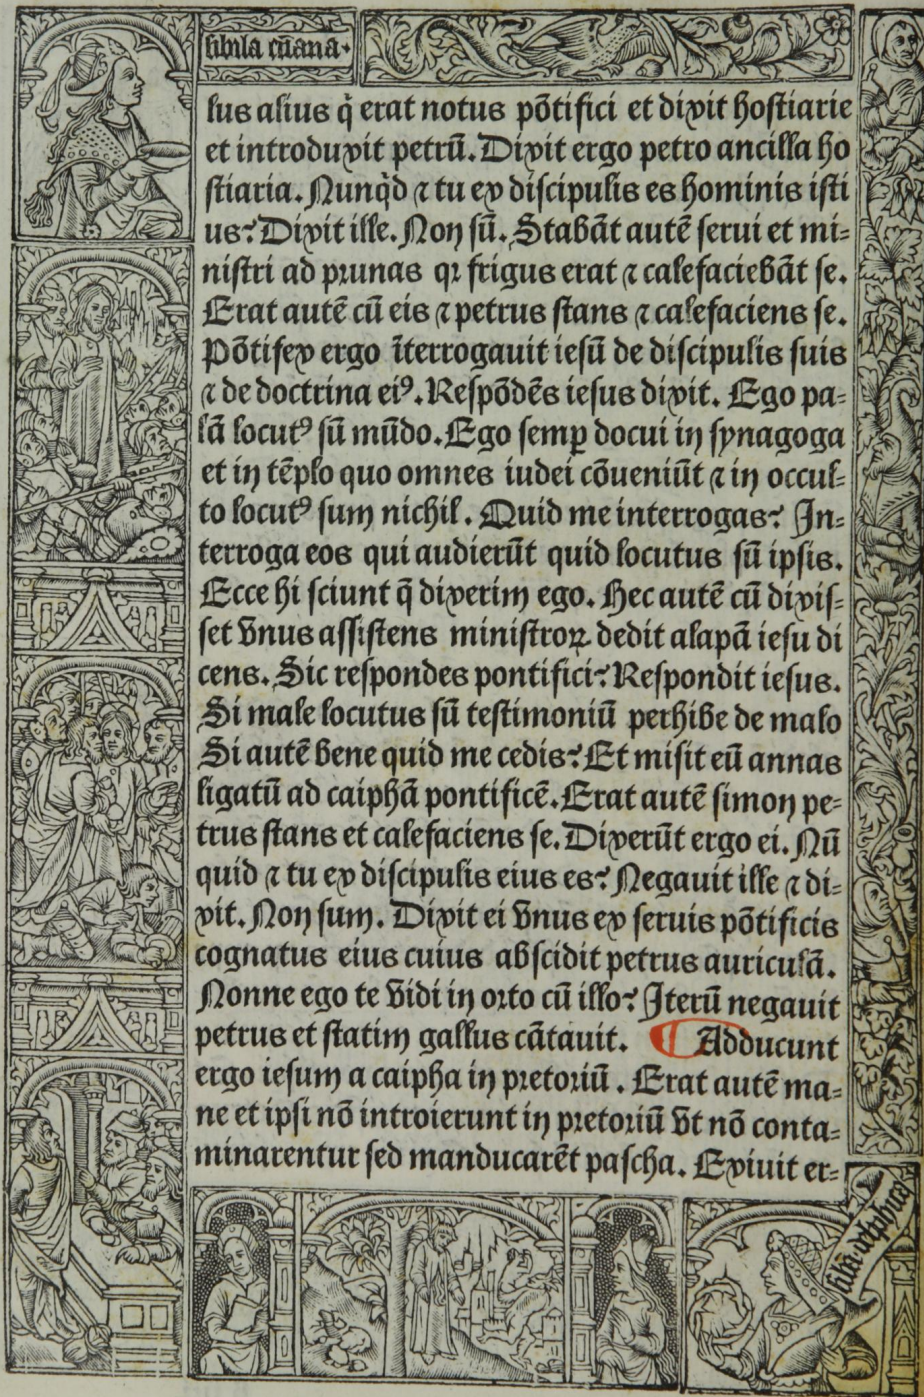 sibila cūana·
lus alius q̇ erat notus põtifici et dixit hostiarie
et introduxit petrū. Dixit ergo petro ancilla ho
stiaria. Nunqḋ ⁊ tu ex discipulis es hominis isti
us? Dixit ille. Non sū. Stabāt autē serui et mi=
nistri ad prunas qꝛ frigus erat ⁊ calefaciebāt se.
Erat autē cū eis ⁊ petrus stans ⁊ calefaciens se.
Põtifex ergo īterrogauit iesū de discipulis suis
⁊ de doctrina eiꝰ. Respõdēs iesus dixit. Ego pa=
lā locutꝰ sū mūdo. Ego semꝑ docui in synagoga
et in tēplo quo omnes iudei cõueniūt ⁊ in occul=
to locutꝰ sum nichil. Quid me interrogas? In=
terroga eos qui audierūt quid locutus sū ipsis.
Ecce hi sciunt q̄ dixerim ego. Hec autē cū dixis=
set vnus assistens ministroꝝ dedit alapā iesu di
cens. Sic respondes pontifici? Respondit iesus.
Si male locutus sū testimoniū perhibe de malo
Si autē bene quid me cedis? Et misit eū annas
ligatū ad caiphā pontificē. Erat autē simon pe=
trus stans et calefaciens se. Dixerūt ergo ei. Nū
quid ⁊ tu ex discipulis eius es? Negauit ille ⁊ di=
xit. Non sum. Dixit ei vnus ex seruis põtificis
cognatus eius cuius abscidit petrus auriculā.
Nonne ego te vidi in orto cū illo? Iterū negauit
petrus et statim gallus cātauit. ¶ Adducunt
ergo iesum a caipha in pretoriū. Erat autē ma=
ne et ipsi nõ introierunt in pretoriū vt nõ conta=
minarentur sed manducarēt pascha. Exiuit er=
sibila delphica